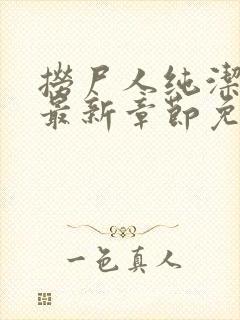 捞尸人纯洁
最新章节免
一色真人